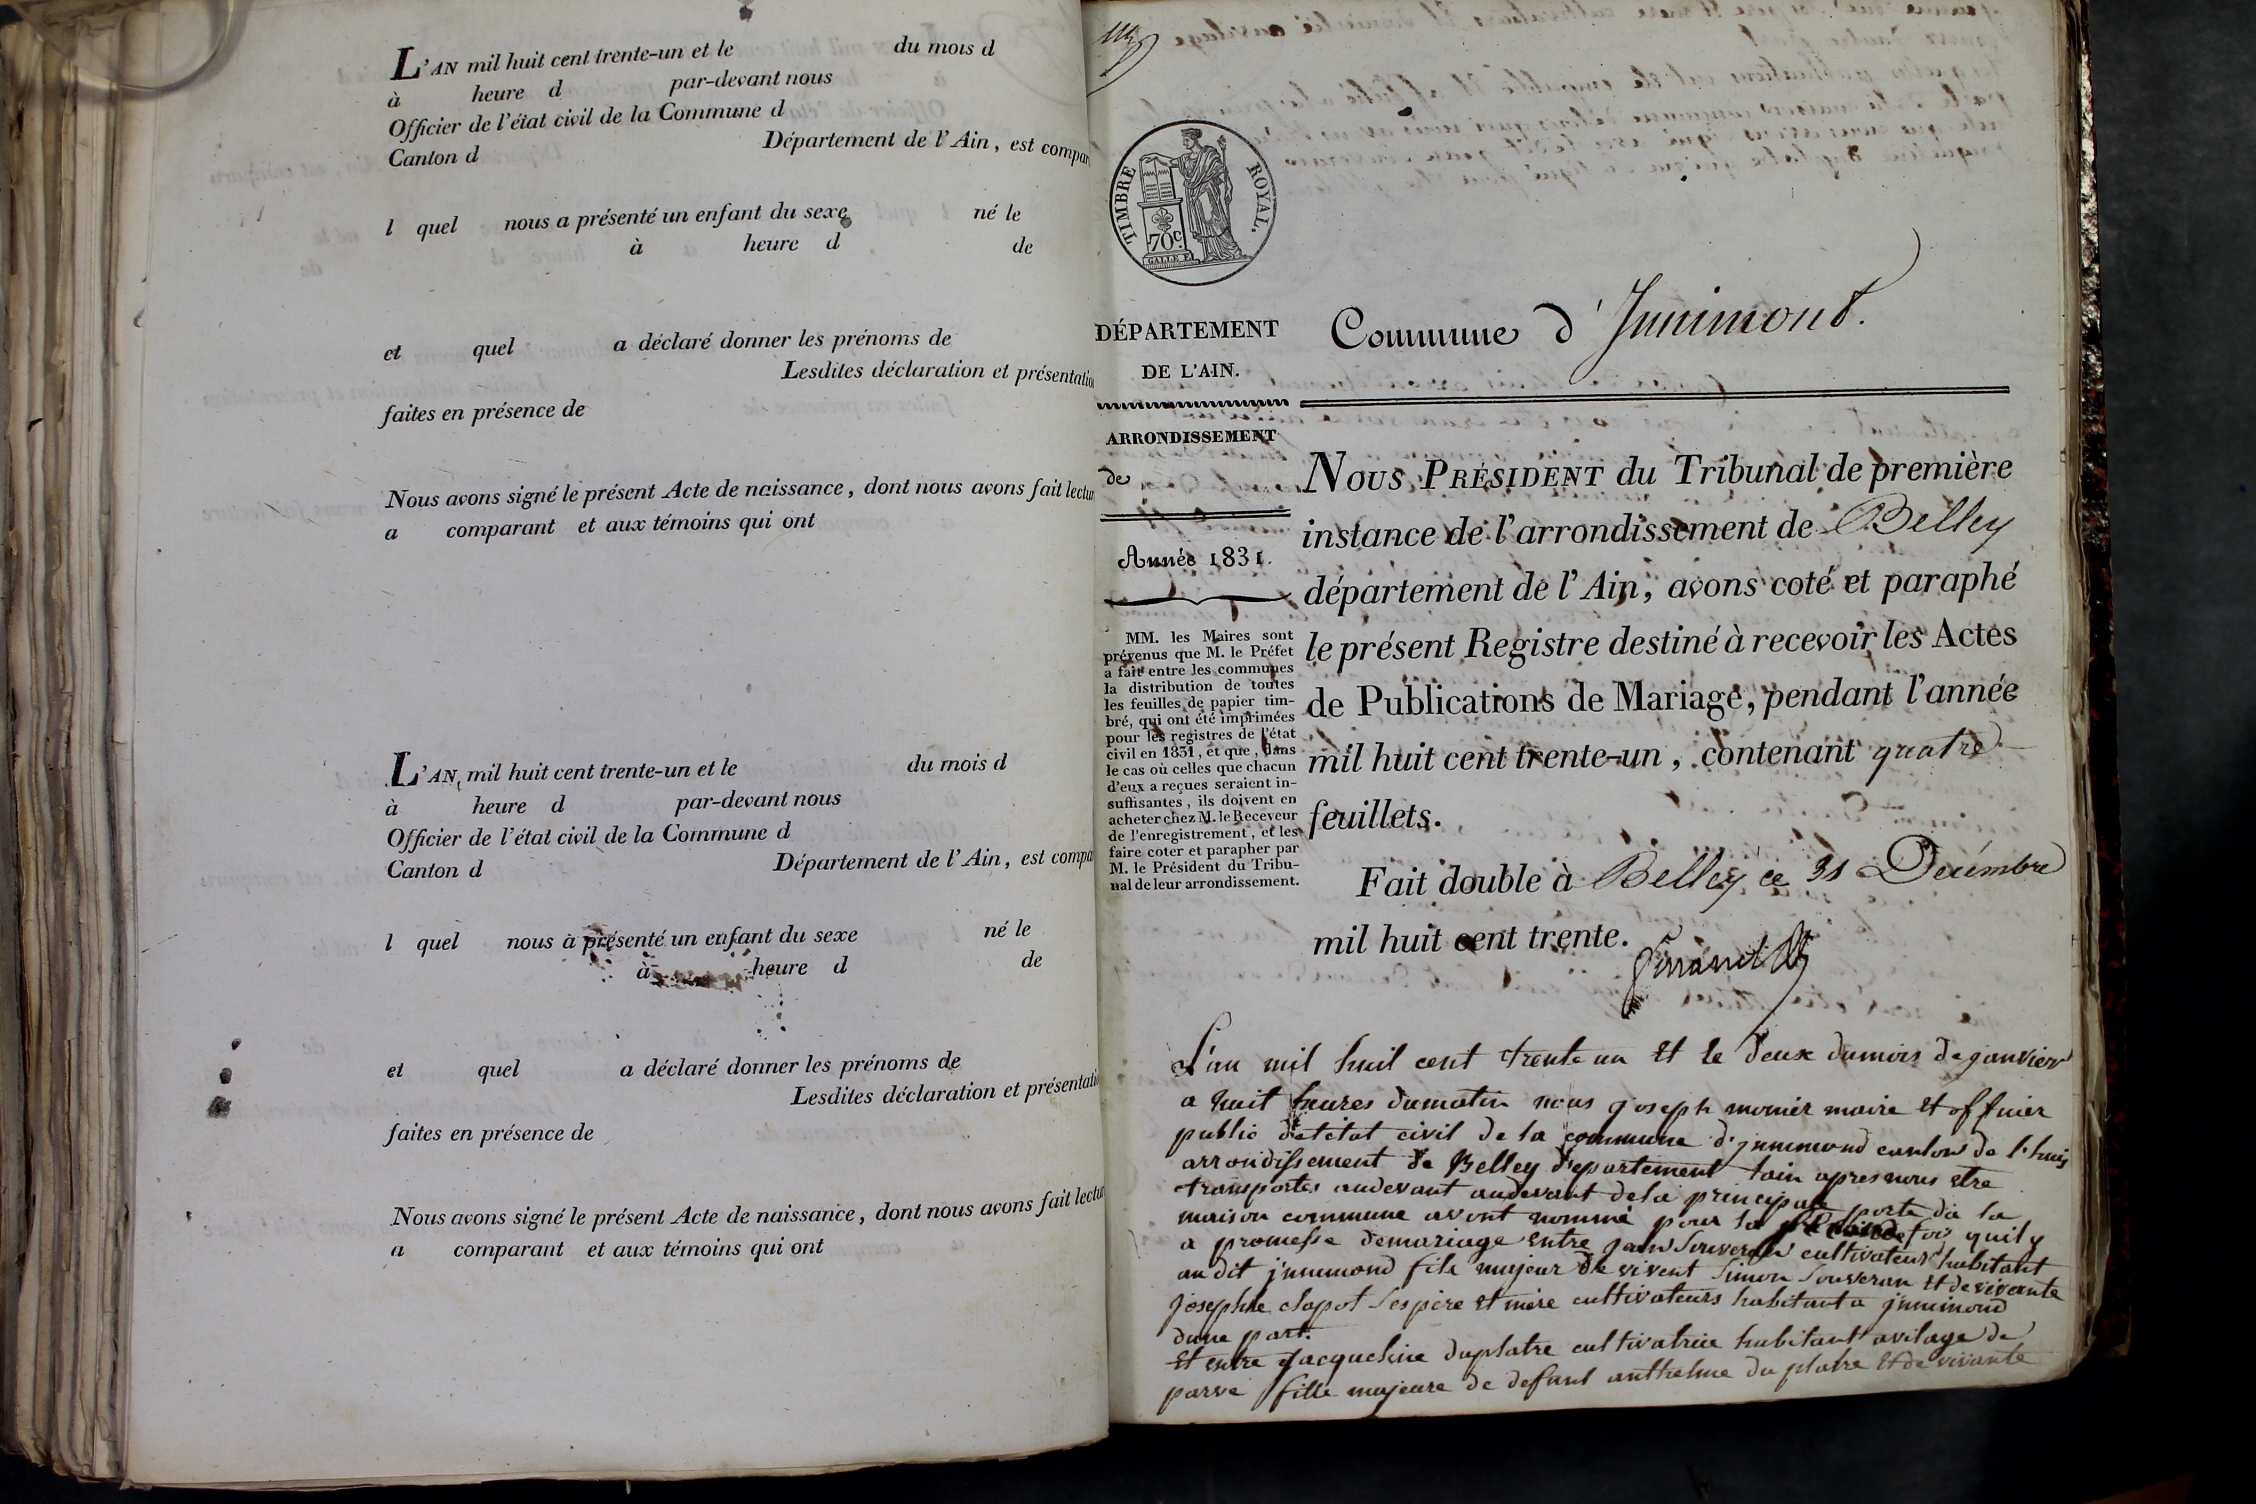 L'AN mil huit cent trente-un et le du mois d
à heure d par-devant nous
Officier de l'état civil de la Commune d
Canton d Département de l'Ain, est compar
l quel nous a présenté un enfant du sexe né le
à heure d de
et quel a déclaré donner les prénoms de
Lesdites déclaration et présentatio
faites en présence de
Nous avons signé le présent Acte de naissance, dont nous avons fait lectur
a comparant et aux témoins qui ont
L'AN mil huit cent trente-un et le du mois d
à heure d par-devant nous
Officier de l'état civil de la Commune d
Canton d Département de l'Ain, est compa
l quel nous a présenté un enfant du sexe né le
à heure d de
et quel a déclaré donner les prénoms de
Lesdites déclaration et présentati
faites en présence de
Nous avons signé le présent Acte de naissance, dont nous avons fait lectur
a comparant et aux témoins qui ont
TIMBRE ROYAL.
70c.
DÉPARTEMENT
DE L'AIN.
ARRONDISSEMENT
de
Année 1831.
MM. les Maires sont
prévenus que M. le Préfet
a fait entre les communes
la distribution de toutes
les feuilles de papier tim-
bré, qui ont été imprimées
pour les registres de l'état
civil en 1831, et que, dans
le cas où celles que chacun
d'eux a reçues seraient in-
suffisantes, ils doivent en
acheter chez M. le Receveur
de l'enregistrement, et les
faire coter et parapher par
M. le Président du Tribu-
nal de leur arrondissement.
Commune d'Innimont.
NOUS PRÉSIDENT du Tribunal de première
instance de l'arrondissement de Belley
département de l'Ain, avons coté et paraphé
le présent Registre destiné à recevoir les Actes
de Publications de Mariage, pendant l'année
mil huit cent trente-un, contenant quatre
feuillets.
Fait double à Belley ce 31 Décembre
mil huit cent trente.
L'an mil huit cent trente un et le deux du mois de janvier
a huit heures du matin nous joseph monier maire et officier
public detétat civil de la commune d'jnnimond canton de l'huis
arrondissement de Belley departement lain apres nous etre
transportés audevant audevant de la principale porte de la
maison commune avont nommé pour la fois quil y
a promesse de mariage entre jean Souveran cultivateur habitant
au dit jnnimond fils majeur de vivent Simon Souveran et de vivante
josephte clapot ses père et mère cultivateurs habitant a jnnimond
dune part.
et entre jacqueline duplatre cultivatrice habitant avilage de
parve fille majeure de defunt anthelme du platre et de vivante